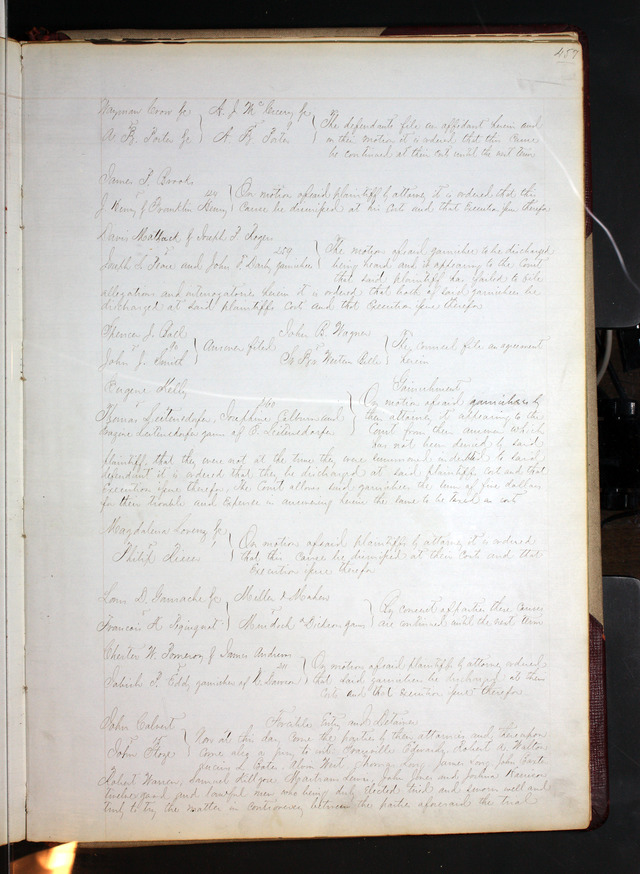 457
Wayman Crow &c A. J. McCreery &c
vs vs The defendants file an affidavit herein and
A. B. Foster on their motion it is ordered that this Cause
be continued at their cost until the next term
James T. Brooks
vs On motion aforsaid plaintiff by attorney it is ordered that this
J. Henry & Franklin Henry Cause be dismissed at his Cost and that Execution issue therefor
Davis & Joseph F.
vs 259 The motion aforsaid garnishee to be discharged
Joseph and John garnishees being heard and it appearing to the Court
that said plaintiff has failed to file
allegations and interrogatories herein it is ordered that both of said garnishees be
discharged at said plaintiffs Cost and that Execution issue therefor
Spencer J. Ball John B. Wagner
vs Answer filed vs The counsel file an agreement
John J. Smith herein
Eugene Kelly Garnishment
vs On motion aforsaid garnishees by
Thomas Leitensdorfer, Josephine and their attorney it appearing to the
Eugene Leitensdorfer garn of E. Leitensdorfer Court from their answer which
has not been denied by said
plaintiff, that they were not at the time they were summoned indebted to said
defendant it is ordered that they be discharged at said plaintiffs Cost and that
execution issue therefor, The Court allows said garnishees the sum of five dollars
for their trouble and expense in answering herein the same to be taxed as cost
Magdalena &c
vs On motion aforsaid plaintiffs by attorney it is ordered
Philip that this Cause be dismissed at their Cost and that
Execution issue therefor
Louis D. Gamache &c Meller &
vs vs By consent of parties these causes
Francois H. Murdock & Dickson garn are continued until the next term
Chester W. Pomeroy & James Anderson
vs On motion aforsaid plaintiffs by attorney ordered
P. Eddy garnishee of that said garnishee be discharged at their
Costs and that execution issue therefor
John Calvert Forcible Entry and Detainer
vs Now at this day come the parties by their attorneys and thereupon
John come also a jury to wit Granville Edwards, Robert A. Walton
L. Bates, West Thomas Long James Long John
Robert Warren, Samuel Lewis, John Jones and Joshua Harrison
twelve good and lawful men who being duly elected tried and sworn well and
truly to try the matter in controversy between the parties aforesaid the trial